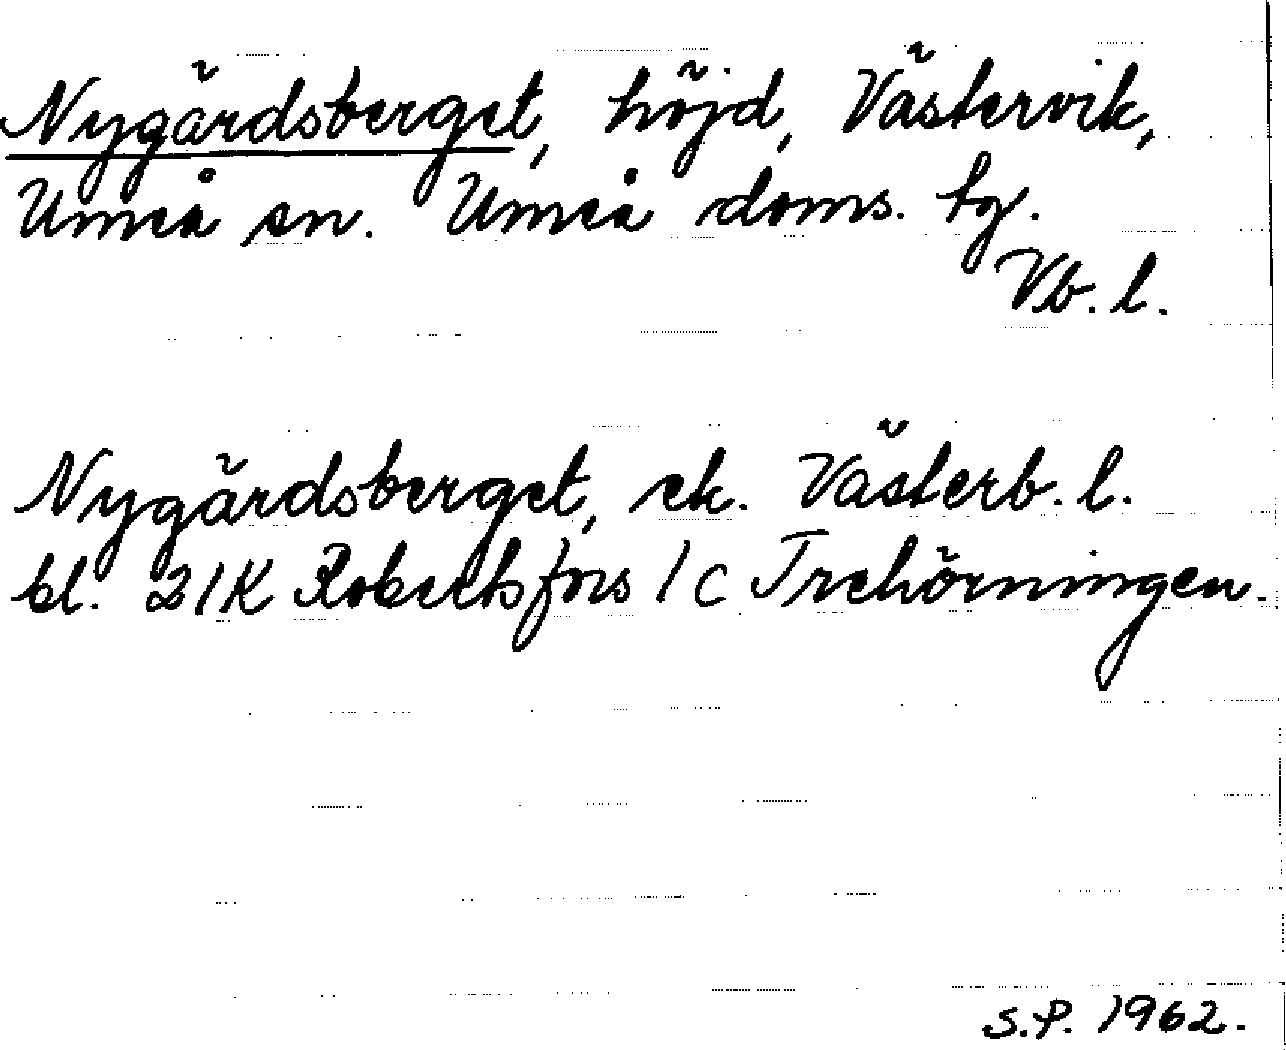 Nygärdsberget, höjd, Västervik,
Umeå sn. Umeå doms. tg.
Vb. l.
Nygärdsberget, ek. Västerb. l.
bl. 21K Robertsfors 1 c Trehörningen.
S.P. 1962.